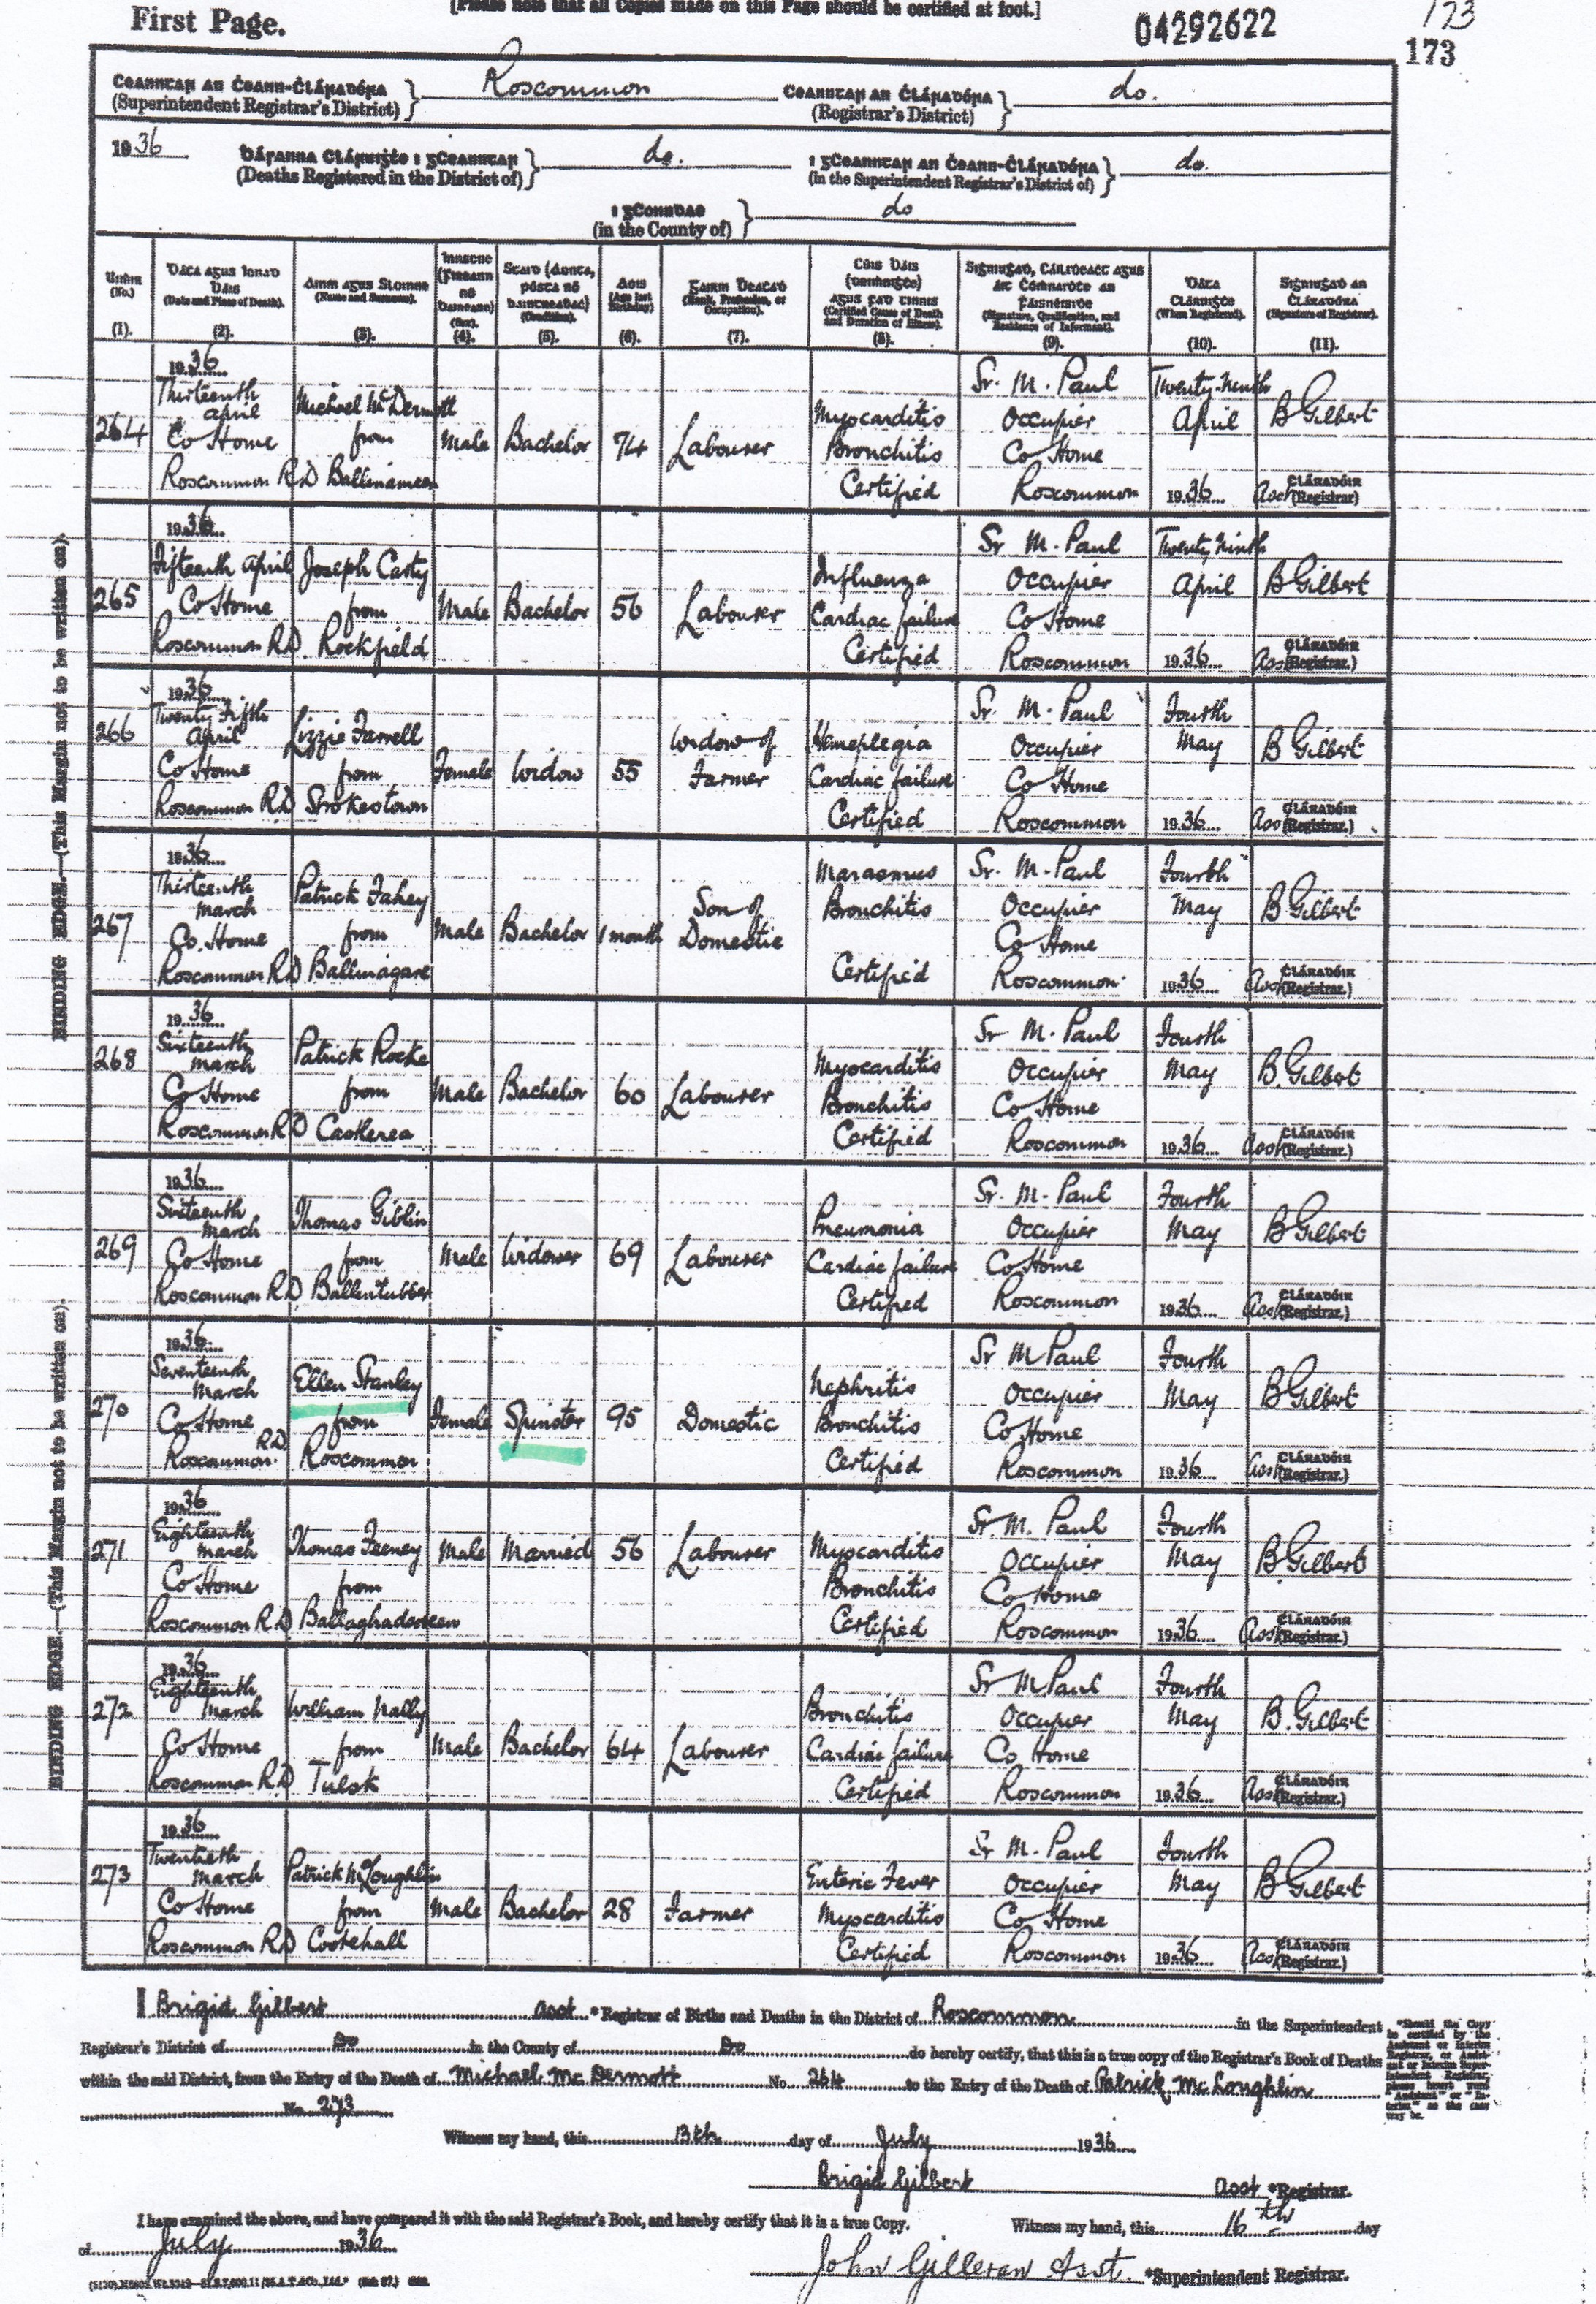 First Page.
[Please note that all Copies made on this Page should be certified at foot.]
04292622
173
173
Ceanntar an Ceann-Cláradóra
(Superintendent Registrar's District)
Roscommon
Ceanntar an Cláradóra
(Registrar's District)
do.
1936
(Deaths Registered in the District of)
do.
(in the Superintendent Registrar's District of)
do.
(in the County of)
do
(No.) (Date and Place of Death). (Name and Surname). (Sex). (Condition). (Age last Birthday) (Rank, Profession, or Occupation). (Certified Cause of Death and Duration of Illness). (Signature, Qualification, and Residence of Informant). (When Registered). (Signature of Registrar).
(1). (2). (3). (4). (5). (6). (7). (8). (9). (10). (11).
1936
Thirteenth Michael McDermott Sr. M. Paul Twenty-Ninth
264 april from Myocarditis Occupier April B Gilbert
Co Home Male Bachelor 74 Labourer Bronchitis Co Home
Roscommon RD Ballinameen Certified Roscommon 1936 Asst (Registrar)
1936
Fifteenth April Joseph Casty Influenza Sr M. Paul Twenty Ninth
265 Co Home from Male Bachelor 56 Labourer Cardiac failure Occupier April B Gilbert
Co Home
Roscommon RD Rockfield Certified Roscommon 1936 Asst (Registrar.)
1936
Twenty Fifth Lizzie Farrell Sr. M. Paul Fourth
266 April from Widow of Hemeplegia Occupier May B Gilbert
Co Home Female Widow 55 Farmer Cardiac failure Co Home
Roscommon RD Strokestown Certified Roscommon 1936 Asst (Registrar.)
1936
Thirteenth Patrick Fahey Marasmus Sr. M. Paul Fourth
267 March from Son of Bronchitis Occupier May B Gilbert
Co. Home Male Bachelor 1 month Domestic Co Home
Roscommon RD Ballinagare Certified Roscommon 1936 Asst (Registrar.)
1936
Sixteenth Patrick Rocke Sr M. Paul Fourth
268 March from Myocarditis Occupier May B. Gilbert
Co Home Male Bachelor 60 Labourer Bronchitis Co Home
Roscommon RD Castlerea Certified Roscommon 1936 Asst (Registrar.)
1936
Sixteenth Thomas Giblin Sr. M. Paul Fourth
269 March from Pneumonia Occupier May B Gilbert
Co Home Male Widower 69 Labourer Cardiac failure Co Home
Roscommon RD Ballintubber Certified Roscommon 1936 Asst (Registrar.)
1936
Seventeenth Ellen Stanley Sr M Paul Fourth
270 March from Nephritis Occupier May B Gilbert
Co Home Female Spinster 95 Domestic Bronchitis Co Home
Roscommon RD Roscommon Certified Roscommon 1936 Asst (Registrar.)
1936
Eighteenth Thomas Feeney Sr. M. Paul Fourth
271 March from Male Married 56 Labourer Myocarditis Occupier May B Gilbert
Co Home Bronchitis Co Home
Roscommon RD Ballaghadereen Certified Roscommon 1936 Asst (Registrar.)
1936
Eighteenth William Nally Sr M Paul Fourth
272 March from Bronchitis Occupier May B. Gilbert
Co Home Male Bachelor 64 Labourer Cardiac failure Co Home
Roscommon RD Tulsk Certified Roscommon 1936 Asst (Registrar.)
1936
Twentieth Patrick McLoughlin Sr M. Paul Fourth
273 March from Enteric Fever Occupier May B Gilbert
Co Home Male Bachelor 28 Farmer Myocarditis Co Home
Roscommon RD Cootehall Certified Roscommon 1936 Asst (Registrar.)
BINDING EDGE.—(This Margin not to be written on).
BINDING EDGE.—(This Margin not to be written on).
I Brigid Gilbert asst *Registrar of Births and Deaths in the District of Roscommon in the Superintendent
Registrar's District of Do in the County of Do do hereby certify, that this is a true copy of the Registrar's Book of Deaths
within the said District, from the Entry of the Death of Michael McDermott No. 264 to the Entry of the Death of Patrick McLoughlin
No. 273
*Should the Copy be certified by the Assistant or Interim Registrar, or Assistant or Interim Superintendent Registrar, please insert word "Assistant" or "Interim" as the case may be.
Witness my hand, this 13th day of July 1936
Brigid Gilbert asst *Registrar.
I have examined the above, and have compared it with the said Registrar's Book, and hereby certify that it is a true Copy. Witness my hand, this 16th day
of July 1936
John Gilleran Asst. *Superintendent Registrar.